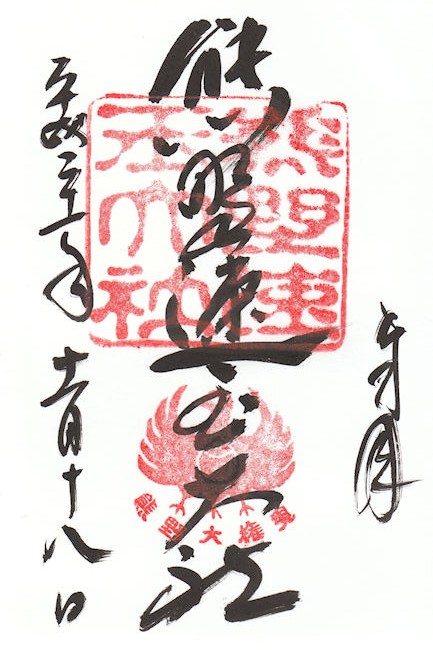 奉拝
熊野速玉大社
平成二十一年十一月十八日
熊野速
玉大社
熊野大権現